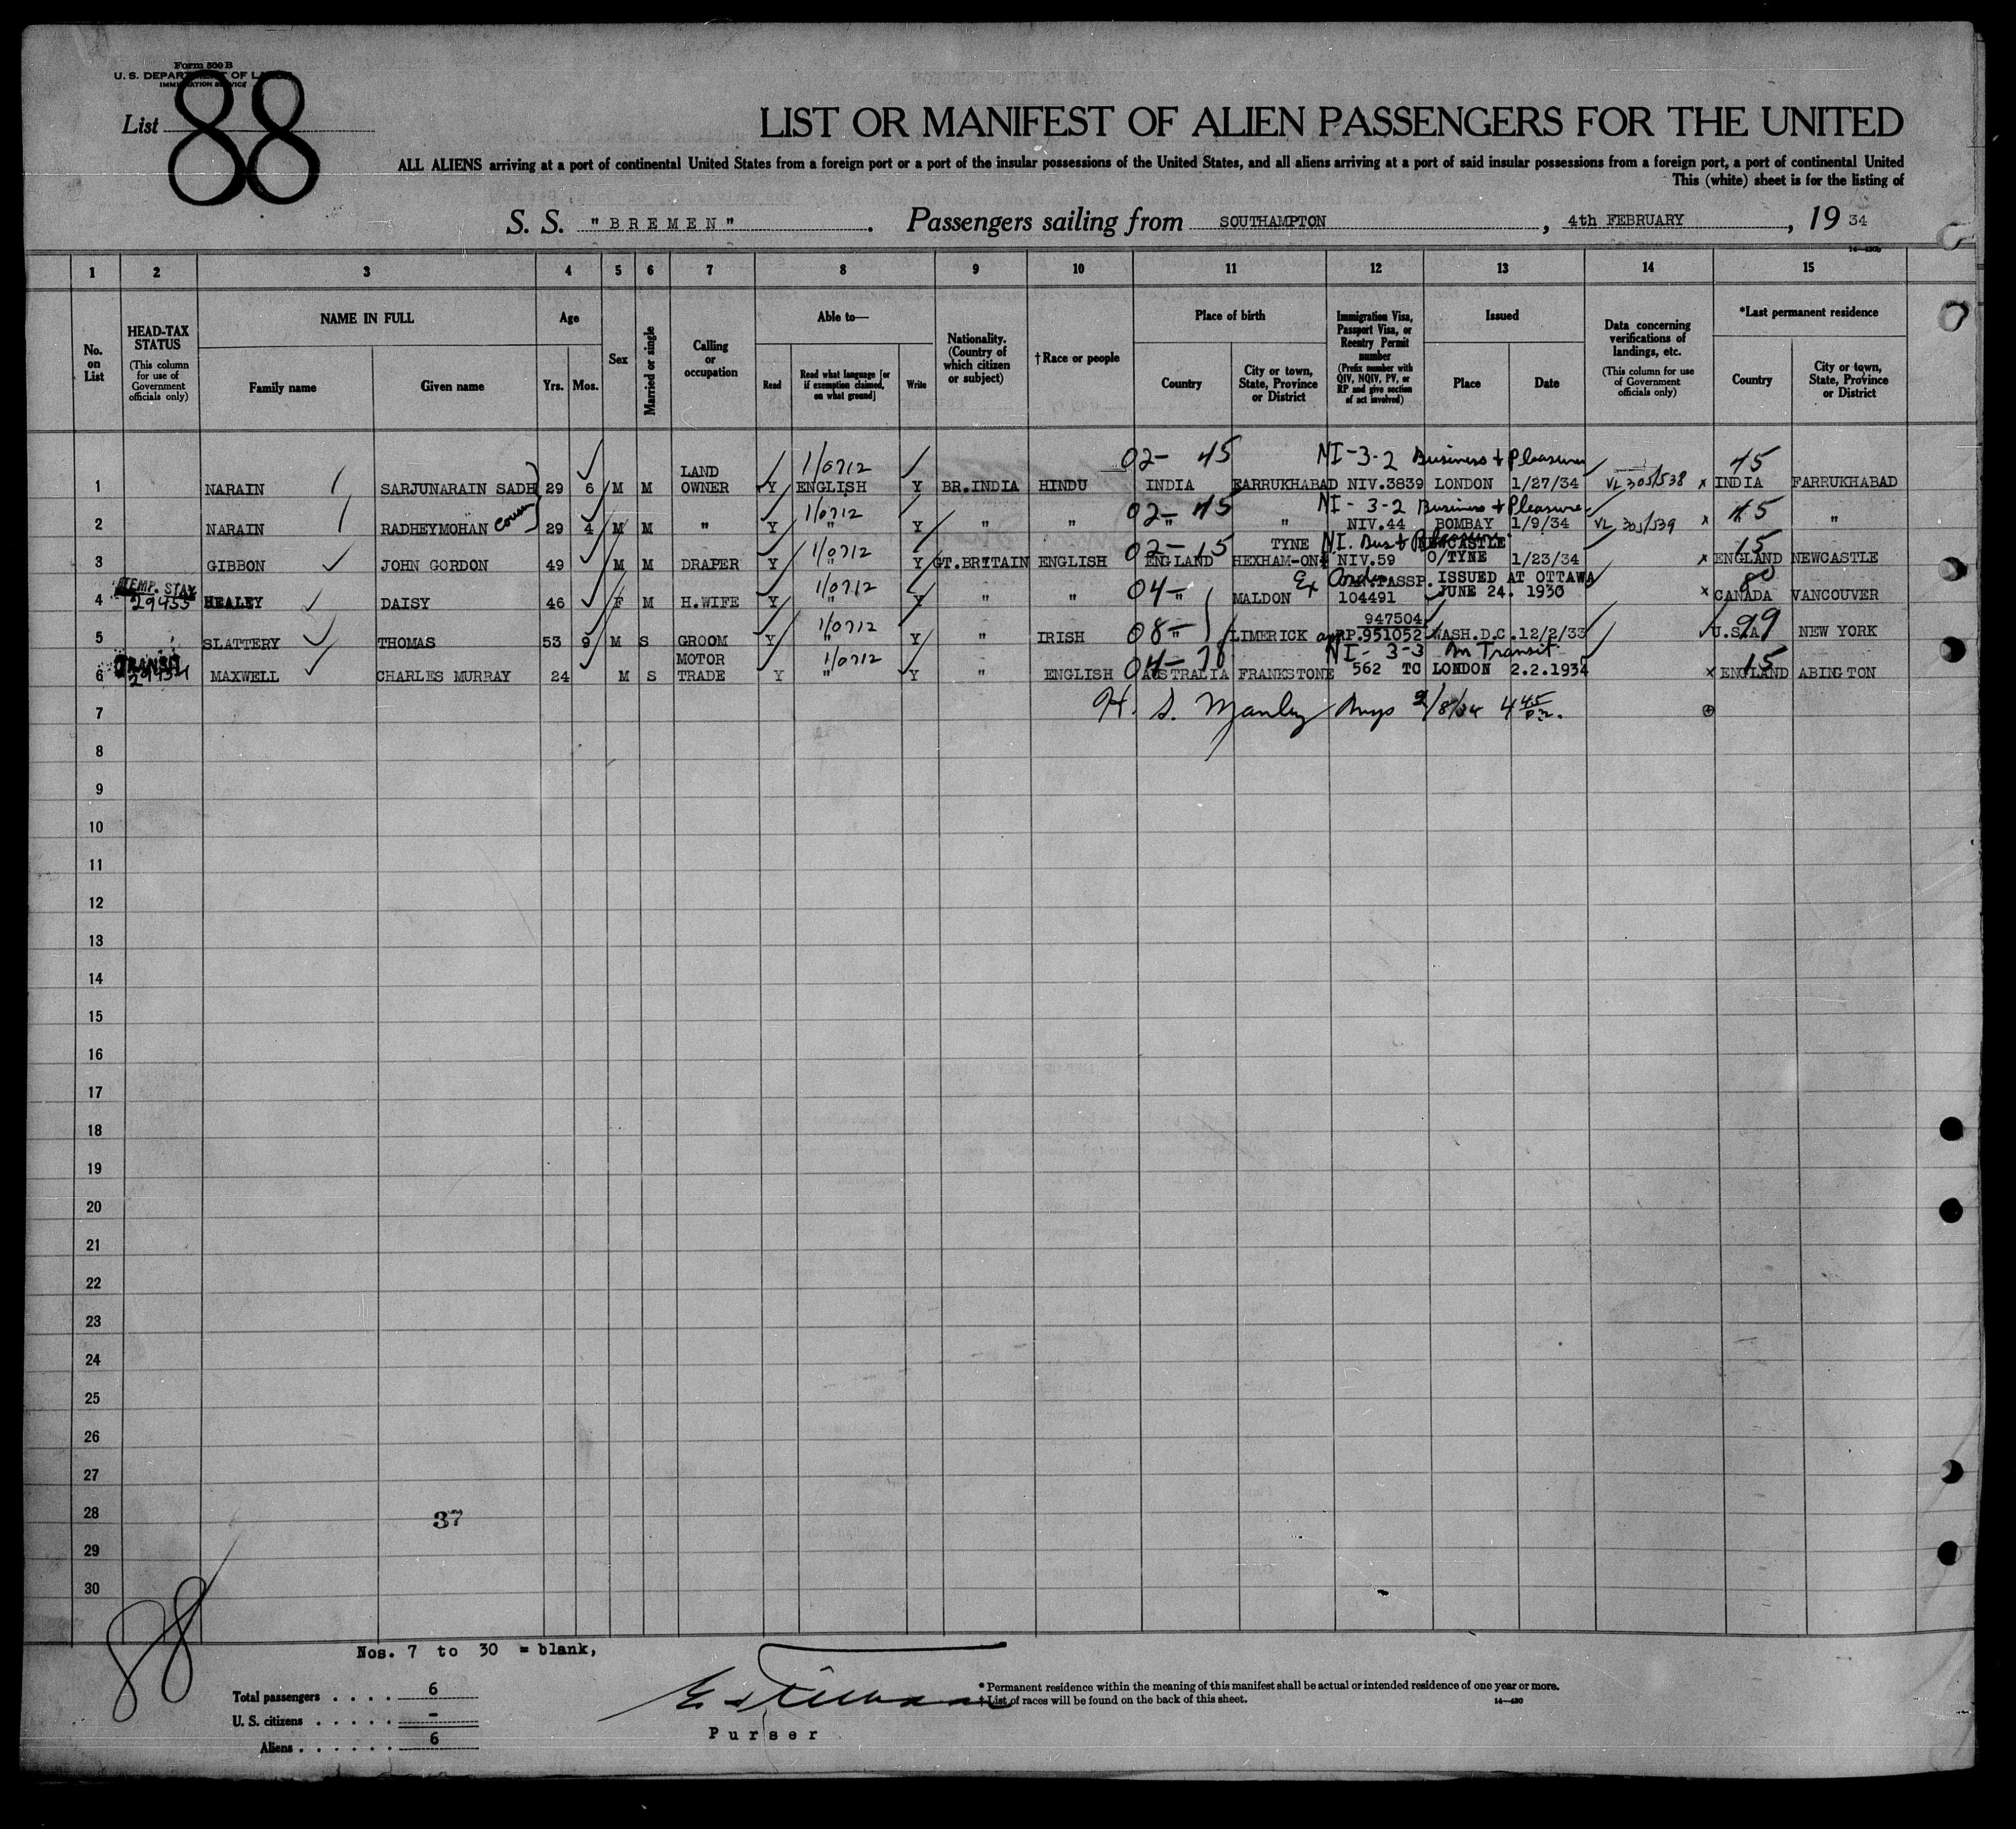 Form 500 B
U. S. DEPARTMENT OF LABOR
IMMIGRATION SERVICE
List 88
LIST OR MANIFEST OF ALIEN PASSENGERS FOR THE UNITED
ALL ALIENS arriving at a port of continental United States from a foreign port or a port of the insular possessions of the United States, and all aliens arriving at a port of said insular possessions from a foreign port, a port of continental United
This (white) sheet is for the listing of
S. S. "BREMEN". Passengers sailing from SOUTHAMPTON, 4th FEBRUARY, 19 34
14-430b
1 2 3 4 5 6 7 8 9 10 11 12 13 14 15
No. on List
HEAD-TAX STATUS (This column for use of Government officials only)
NAME IN FULL
Family name Given name
Age
Yrs. Mos.
Sex
Married or single
Calling or occupation
Able to—
Read Read what language [or if exemption claimed, on what ground] Write
Nationality. (Country of which citizen or subject)
†Race or people
Place of birth
Country City or town, State, Province or District
Immigration Visa, Passport Visa, or Reentry Permit number (Prefix number with QIV, NQIV, PV, or RP and give section of act involved)
Issued
Place Date
Data concerning verifications of landings, etc. (This column for use of Government officials only)
*Last permanent residence
Country City or town, State, Province or District
LAND 1/0712 02- 45 NI-3-2 Business + Pleasure 45
1 NARAIN SARJUNARAIN SADH 29 6 M M OWNER Y ENGLISH Y BR.INDIA HINDU INDIA FARRUKHABAD NIV.3839 LONDON 1/27/34 VL 305/538 x INDIA FARRUKHABAD
1/0712 02- 45 NI-3-2 Business + Pleasure 45
2 NARAIN RADHEYMOHAN cousin 29 4 M M " Y " Y " " " " NIV.44 BOMBAY 1/9/34 VL 305/539 x " "
1/0712 02-15 TYNE NI. Bus + Pleasure NEWCASTLE 15
3 GIBBON JOHN GORDON 49 M M DRAPER Y " Y GT.BRITAIN ENGLISH ENGLAND HEXHAM-ON NIV.59 O/TYNE 1/23/34 x ENGLAND NEWCASTLE
TEMP. STAY 1/0712 04- Ex PASSP. ISSUED AT OTTAWA 80
4 29455 HEALEY DAISY 46 F M H.WIFE Y " Y " " " MALDON 104491 JUNE 24. 1930 x CANADA VANCOUVER
1/0712 08- 947504 99
5 SLATTERY THOMAS 53 9 M S GROOM Y " Y " IRISH " LIMERICK RP.951052 WASH.D.C. 12/2/33 U.S.A. NEW YORK
TRANSIT MOTOR 1/0712 04-78 NI-3-3 In Transit 15
6 29454 MAXWELL CHARLES MURRAY 24 M S TRADE Y " Y " ENGLISH AUSTRALIA FRANKSTONE 562 TC LONDON 2.2.1934 x ENGLAND ABINGTON
7 H. S. Manley Insp 2/8/34 4 45 P.M.
8
9
10
11
12
13
14
15
16
17
18
19
20
21
22
23
24
25
26
27
28 37
29
30
88
Nos. 7 to 30 = blank,
Total passengers . . . . 6
U. S. citizens . . . . . -
Aliens . . . . . . 6
Purser
* Permanent residence within the meaning of this manifest shall be actual or intended residence of one year or more.
† List of races will be found on the back of this sheet.
14-430